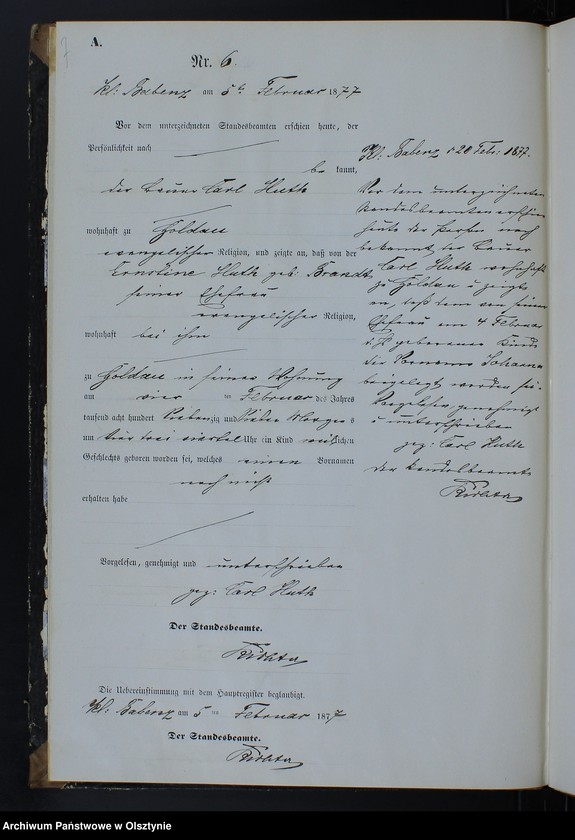 A.
Nr. 6.
Kl: Babenz am 5ten Februar 1877
Vor dem unterzeichneten Standesbeamten erschien heute, der
Persönlichkeit nach
be kannt,
der Bauer Carl Huth
wohnhaft zu Goldau
evangelischer Religion, und zeigte an, daß von der
Ernstine Huth geb: Brandt
seiner Ehefrau
evangelischer Religion,
wohnhaft bei ihm
zu Goldau in seiner Wohnung
am vier ten Februar des Jahres
tausend acht hundert siebenzig und sieben Morgens
um drei viertel Uhr ein Kind lichen
Geschlechts geboren worden sei, welches einen Vornamen
noch nicht
erhalten habe
Vorgelesen, genehmigt und unterschrieben
gez: Carl Huth
Der Standesbeamte.
Richter
Die Uebereinstimmung mit dem Hauptregister beglaubigt.
Kl: Babenz am 5 ten Februar 1877
Der Standesbeamte.
Richter
Kl: Babenz d 20 Febr: 1877.
Vor dem unterzeichneten
Standesbeamten erschien
heute der Person nach
bekannt, der Bauer
Carl Huth wohnhaft
zu Goldau u zeigte
an, daß dem von seiner
Ehefrau am 4 Februar
d. J. geborenen Kinde
der Vorname Johann
beigelegt worden sei.
Vorgelesen genehmigt
u unterschrieben
gez: Carl Huth
der Standesbeamte
Richter
Archiwum Państwowe w Olsztynie